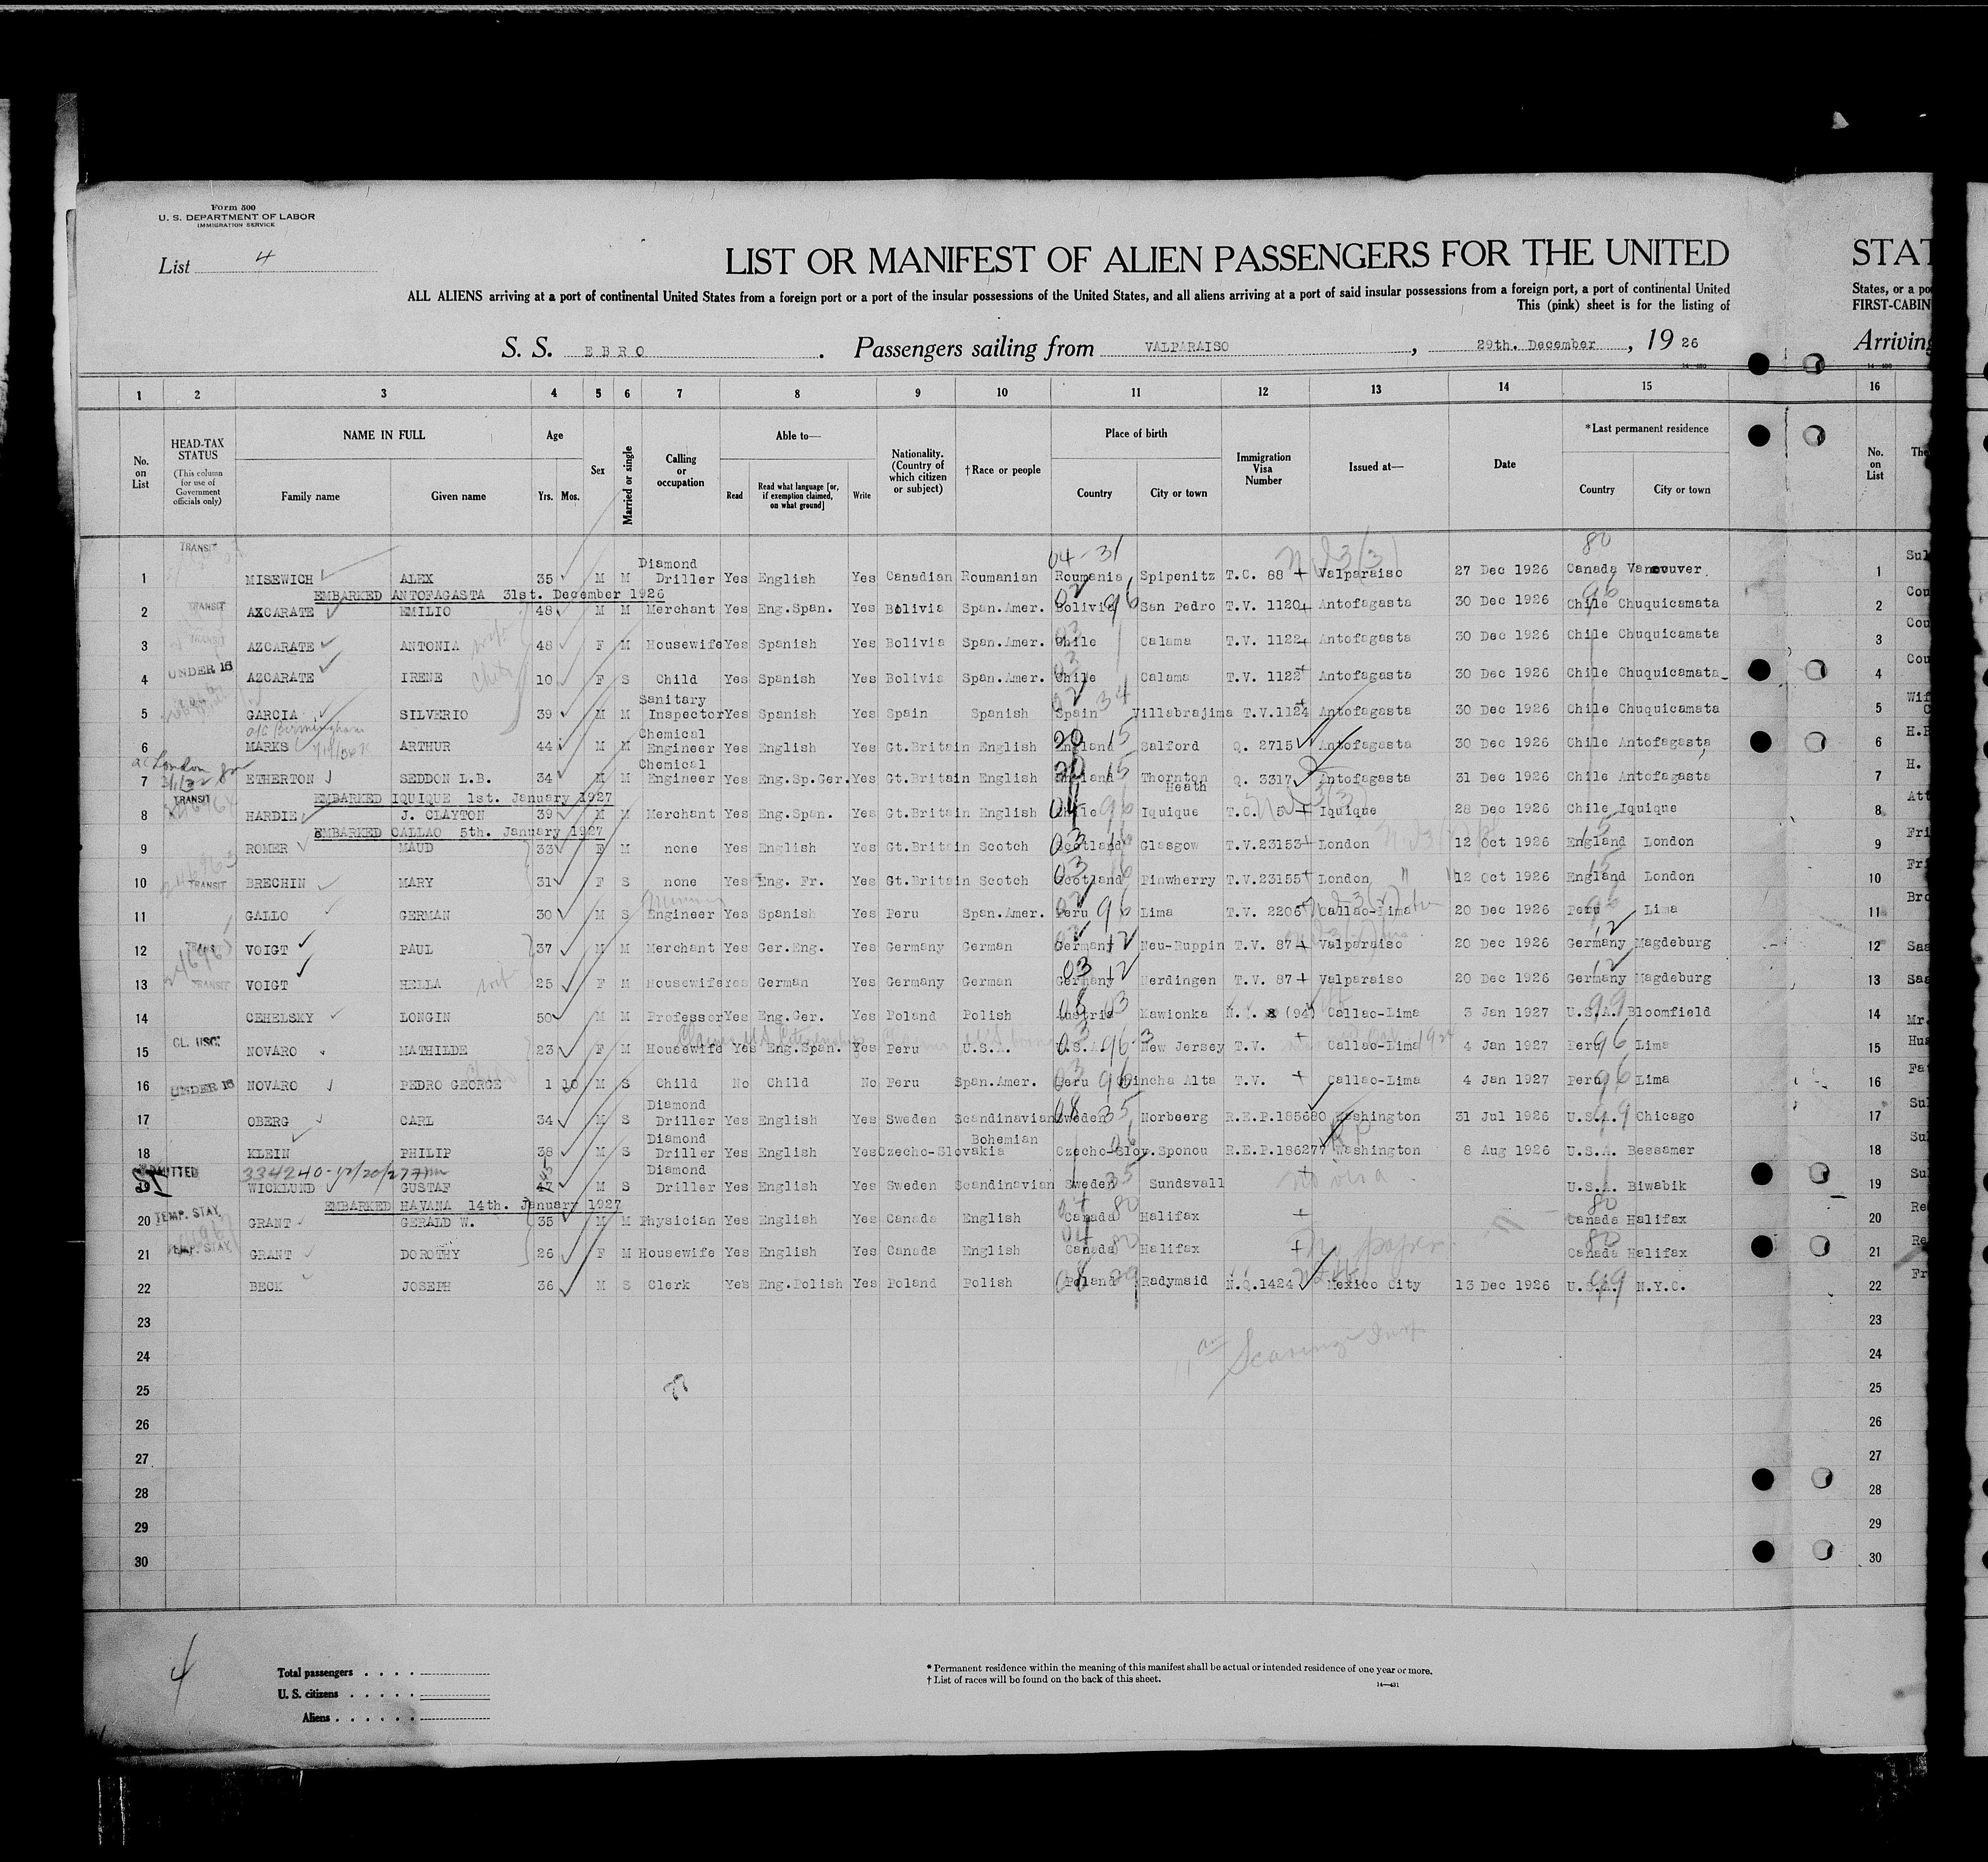 Form 500
U. S. DEPARTMENT OF LABOR
IMMIGRATION SERVICE
List 4
LIST OR MANIFEST OF ALIEN PASSENGERS FOR THE UNITED
STAT
ALL ALIENS arriving at a port of continental United States from a foreign port or a port of the insular possessions of the United States, and all aliens arriving at a port of said insular possessions from a foreign port, a port of continental United
States, or a po
This (pink) sheet is for the listing of
FIRST-CABIN
S. S. EBRO. Passengers sailing from VALPARAISO, 29th. December, 19 26
Arriving
1 2 3 4 5 6 7 8 9 10 11 12 13 14 15 16
No. on List
HEAD-TAX STATUS (This column for use of Government officials only)
NAME IN FULL
Family name Given name
Age
Yrs. Mos.
Sex
Married or single
Calling or occupation
Able to—
Read Read what language [or, if exemption claimed, on what ground] Write
Nationality. (Country of which citizen or subject)
†Race or people
Place of birth
Country City or town
Immigration Visa Number
Issued at—
Date
*Last permanent residence
Country City or town
No. on List
The
TRANSIT
1 MISEWICH ALEX 35 M M Diamond Driller Yes English Yes Canadian Roumanian Roumania Spipenitz T.C. 88 Valparaiso 27 Dec 1926 Canada Vancouver 1 Sul
EMBARKED ANTOFAGASTA 31st. December 1926
2 TRANSIT AXCARATE EMILIO 48 M M Merchant Yes Eng.Span. Yes Bolivia Span.Amer. Bolivia San Pedro T.V. 1120 Antofagasta 30 Dec 1926 Chile Chuquicamata 2 Cou
3 TRANSIT AZCARATE ANTONIA wife 48 F M Housewife Yes Spanish Yes Bolivia Span.Amer. Chile Calama T.V. 1122 Antofagasta 30 Dec 1926 Chile Chuquicamata 3 Cou
4 UNDER 16 AZCARATE IRENE 10 F S Child Yes Spanish Yes Bolivia Span.Amer. Chile Calama T.V. 1122 Antofagasta 30 Dec 1926 Chile Chuquicamata 4 Cou
5 GARCIA SILVERIO 39 M M Sanitary Inspector Yes Spanish Yes Spain Spanish Spain Villabrajima T.V.1124 Antofagasta 30 Dec 1926 Chile Chuquicamata 5 Wif
a/c Birmingham
6 MARKS ARTHUR 44 M M Chemical Engineer Yes English Yes Gt.Britain English England Salford Q. 2715 Antofagasta 30 Dec 1926 Chile Antofagasta 6 H.B
London
7 ETHERTON SEDDON L.B. 34 M M Chemical Engineer Yes Eng.Sp.Ger. Yes Gt.Britain English England Thornton Heath Q. 3317 Antofagasta 31 Dec 1926 Chile Antofagasta 7 H.
EMBARKED IQUIQUE 1st. January 1927
8 TRANSIT HARDIE J. CLAYTON 39 M M Merchant Yes Eng.Span. Yes Gt.Britain English Chile Iquique T.C. 50 Iquique 28 Dec 1926 Chile Iquique 8 Att
EMBARKED CALLAO 5th. January 1927
9 ROMER MAUD 33 F M none Yes English Yes Gt.Britain Scotch Scotland Glasgow T.V.23153 London 12 Oct 1926 England London 9 Fri
10 TRANSIT BRECHIN MARY 31 F S none Yes Eng. Fr. Yes Gt.Britain Scotch Scotland Pinwherry T.V.23155 London 12 Oct 1926 England London 10 Fr
11 GALLO GERMAN 30 M S Engineer Yes Spanish Yes Peru Span.Amer. Peru Lima T.V. 2206 Callao-Lima 20 Dec 1926 Peru Lima 11 Bro
12 VOIGT PAUL 37 M M Merchant Yes Ger.Eng. Yes Germany German Germany Neu-Ruppin T.V. 87 Valparaiso 20 Dec 1926 Germany Magdeburg 12 Saa
13 TRANSIT VOIGT HELLA wife 25 F M Housewife Yes German Yes Germany German Germany Nerdingen T.V. 87 Valparaiso 20 Dec 1926 Germany Magdeburg 13 Saa
14 CEHELSKY LONGIN 50 M M Professor Yes Eng.Ger. Yes Poland Polish Austria Kawionka (94) Callao-Lima 3 Jan 1927 U.S.A. Bloomfield 14 Mr.
Claims US Citizenship
15 CL. USC. NOVARO MATHILDE 23 F M Housewife Yes Eng.Span. Yes Peru U.S.A. U.S.A. New Jersey T.V. Callao-Lima 4 Jan 1927 Peru Lima 15 Hus
16 UNDER 16 NOVARO PEDRO GEORGE 1 10 M S Child No Child No Peru Span.Amer. Peru Chincha Alta T.V. Callao-Lima 4 Jan 1927 Peru Lima 16 Fa
17 OBERG CARL 34 M S Diamond Driller Yes English Yes Sweden Scandinavian Sweden Norbeerg R.E.P.185680 Washington 31 Jul 1926 U.S.A. Chicago 17 Sul
18 KLEIN PHILIP 38 M S Diamond Driller Yes English Yes Czecho-Slovakia Bohemian Czecho-Slov. Sponou R.E.P.186277 Washington 8 Aug 1926 U.S.A. Bessamer 18 Sul
ADMITTED
19 WICKLUND GUSTAF 47 M S Diamond Driller Yes English Yes Sweden Scandinavian Sweden Sundsvall no visa U.S.A. Biwabik 19 Su
EMBARKED HAVANA 14th. January 1927
20 TEMP. STAY. GRANT GERALD W. 35 M M Physician Yes English Yes Canada English Canada Halifax Canada Halifax 20 Re
21 TEMP. STAY. GRANT DOROTHY 26 F M Housewife Yes English Yes Canada English Canada Halifax no paper Canada Halifax 21 Re
22 BECK JOSEPH 36 M S Clerk Yes Eng.Polish Yes Poland Polish Poland Radymsid N.Q.1424 Mexico City 13 Dec 1926 U.S.A. N.Y.C. 22 Fr
23 23
24 24
25 25
26 26
27 27
28 28
29 29
30 30
4
Total passengers
U. S. citizens
Aliens
* Permanent residence within the meaning of this manifest shall be actual or intended residence of one year or more.
† List of races will be found on the back of this sheet.
14—431